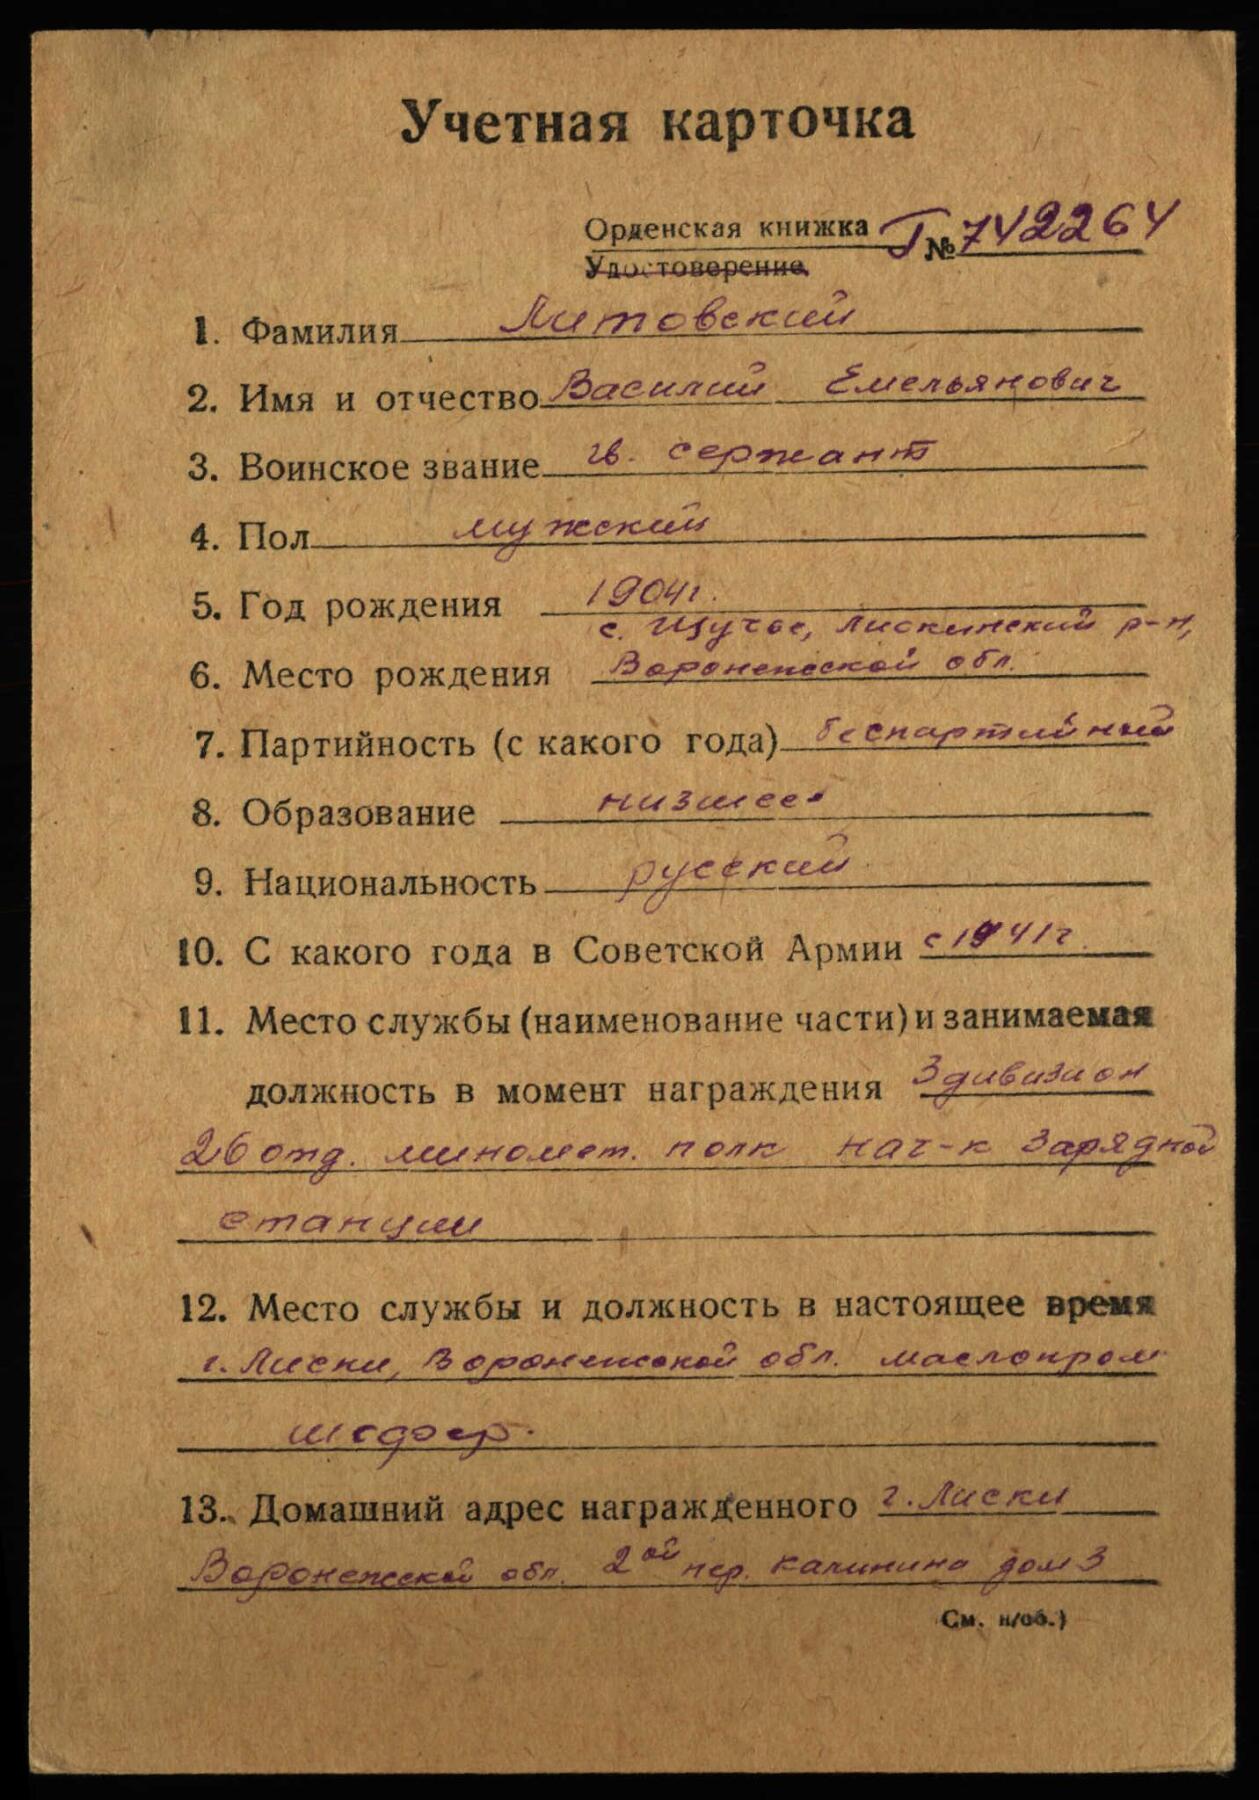 Учетная карточка
Орденская книжка Г № 742264
Удостоверение
1. Фамилия Литовский
2. Имя и отчество Василий Емельянович
3. Воинское звание гв. сержант
4. Пол мужский
5. Год рождения 1904г.
с. Щучье, Лискинский р-н,
6. Место рождения Воронежской обл.
7. Партийность (с какого года) беспартийный
8. Образование низшее
9. Национальность русский
10. С какого года в Советской Армии с 1941г.
11. Место службы (наименование части) и занимаемая
должность в момент награждения 3 дивизион
26 отд. миномет. полк нач-к зарядной
станции
12. Место службы и должность в настоящее время
г. Лиски, Воронежской обл. маслопром
шофер.
13. Домашний адрес награжденного г. Лиски
Воронежской обл. 2ой пер. Калинина дом 3
См. н/об.)